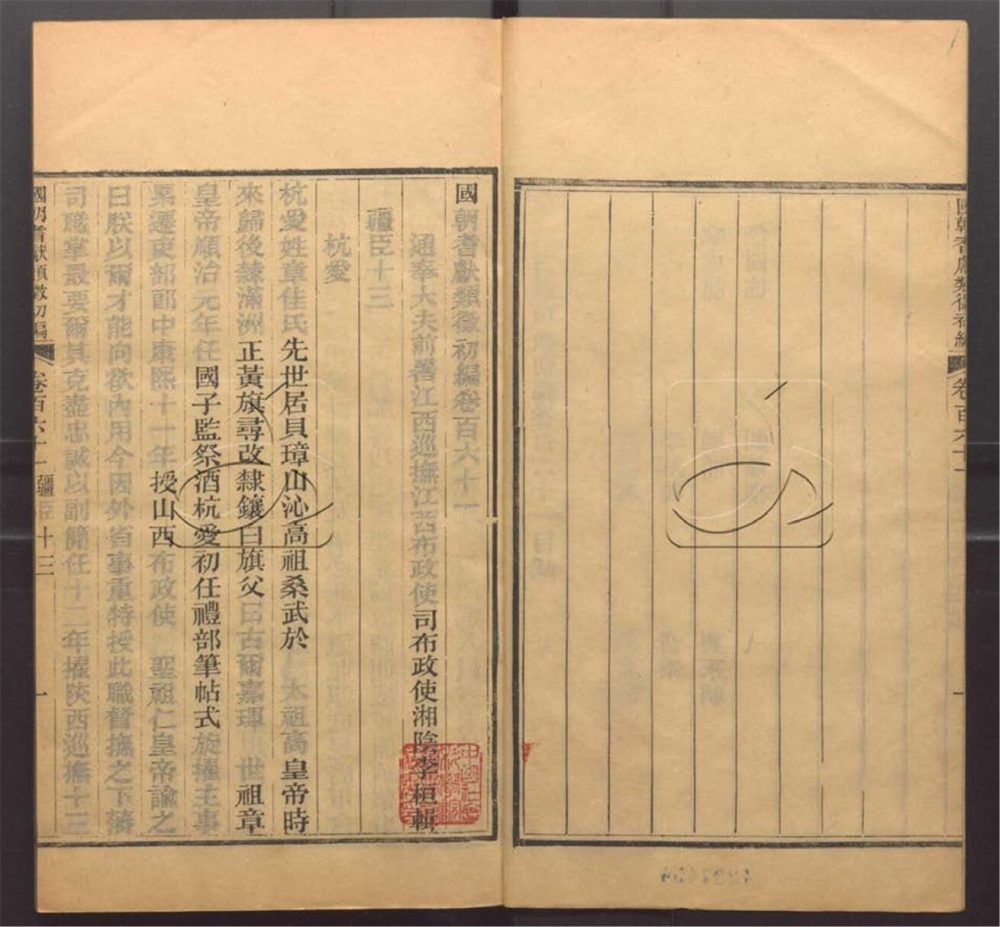 國朝耆獻類徵初編
卷百六十一
國朝耆獻類徵初編卷百六十一
通奉大夫前署江西巡撫江西布政使司布政使湘陰李桓輯
疆臣十三
杭愛
杭愛姓章佳氏先世居貝璋山沁高祖桑武於 太祖高皇帝時
來歸後隸滿洲正黃旗尋改隸鑲白旗父曰古爾嘉琿 世祖章
皇帝順治元年任國子監祭酒杭愛初任禮部筆帖式旋擢主事
累遷吏部郎中康熙十一年授山西布政使 聖祖仁皇帝諭之
曰朕以爾才能向欲內用今因外省事重特授此職督撫之下藩
司職掌最要爾其克盡忠誠以副簡任十二年擢陝西巡撫十三
國朝耆獻類徵初編 卷百六十一 疆臣十三 一